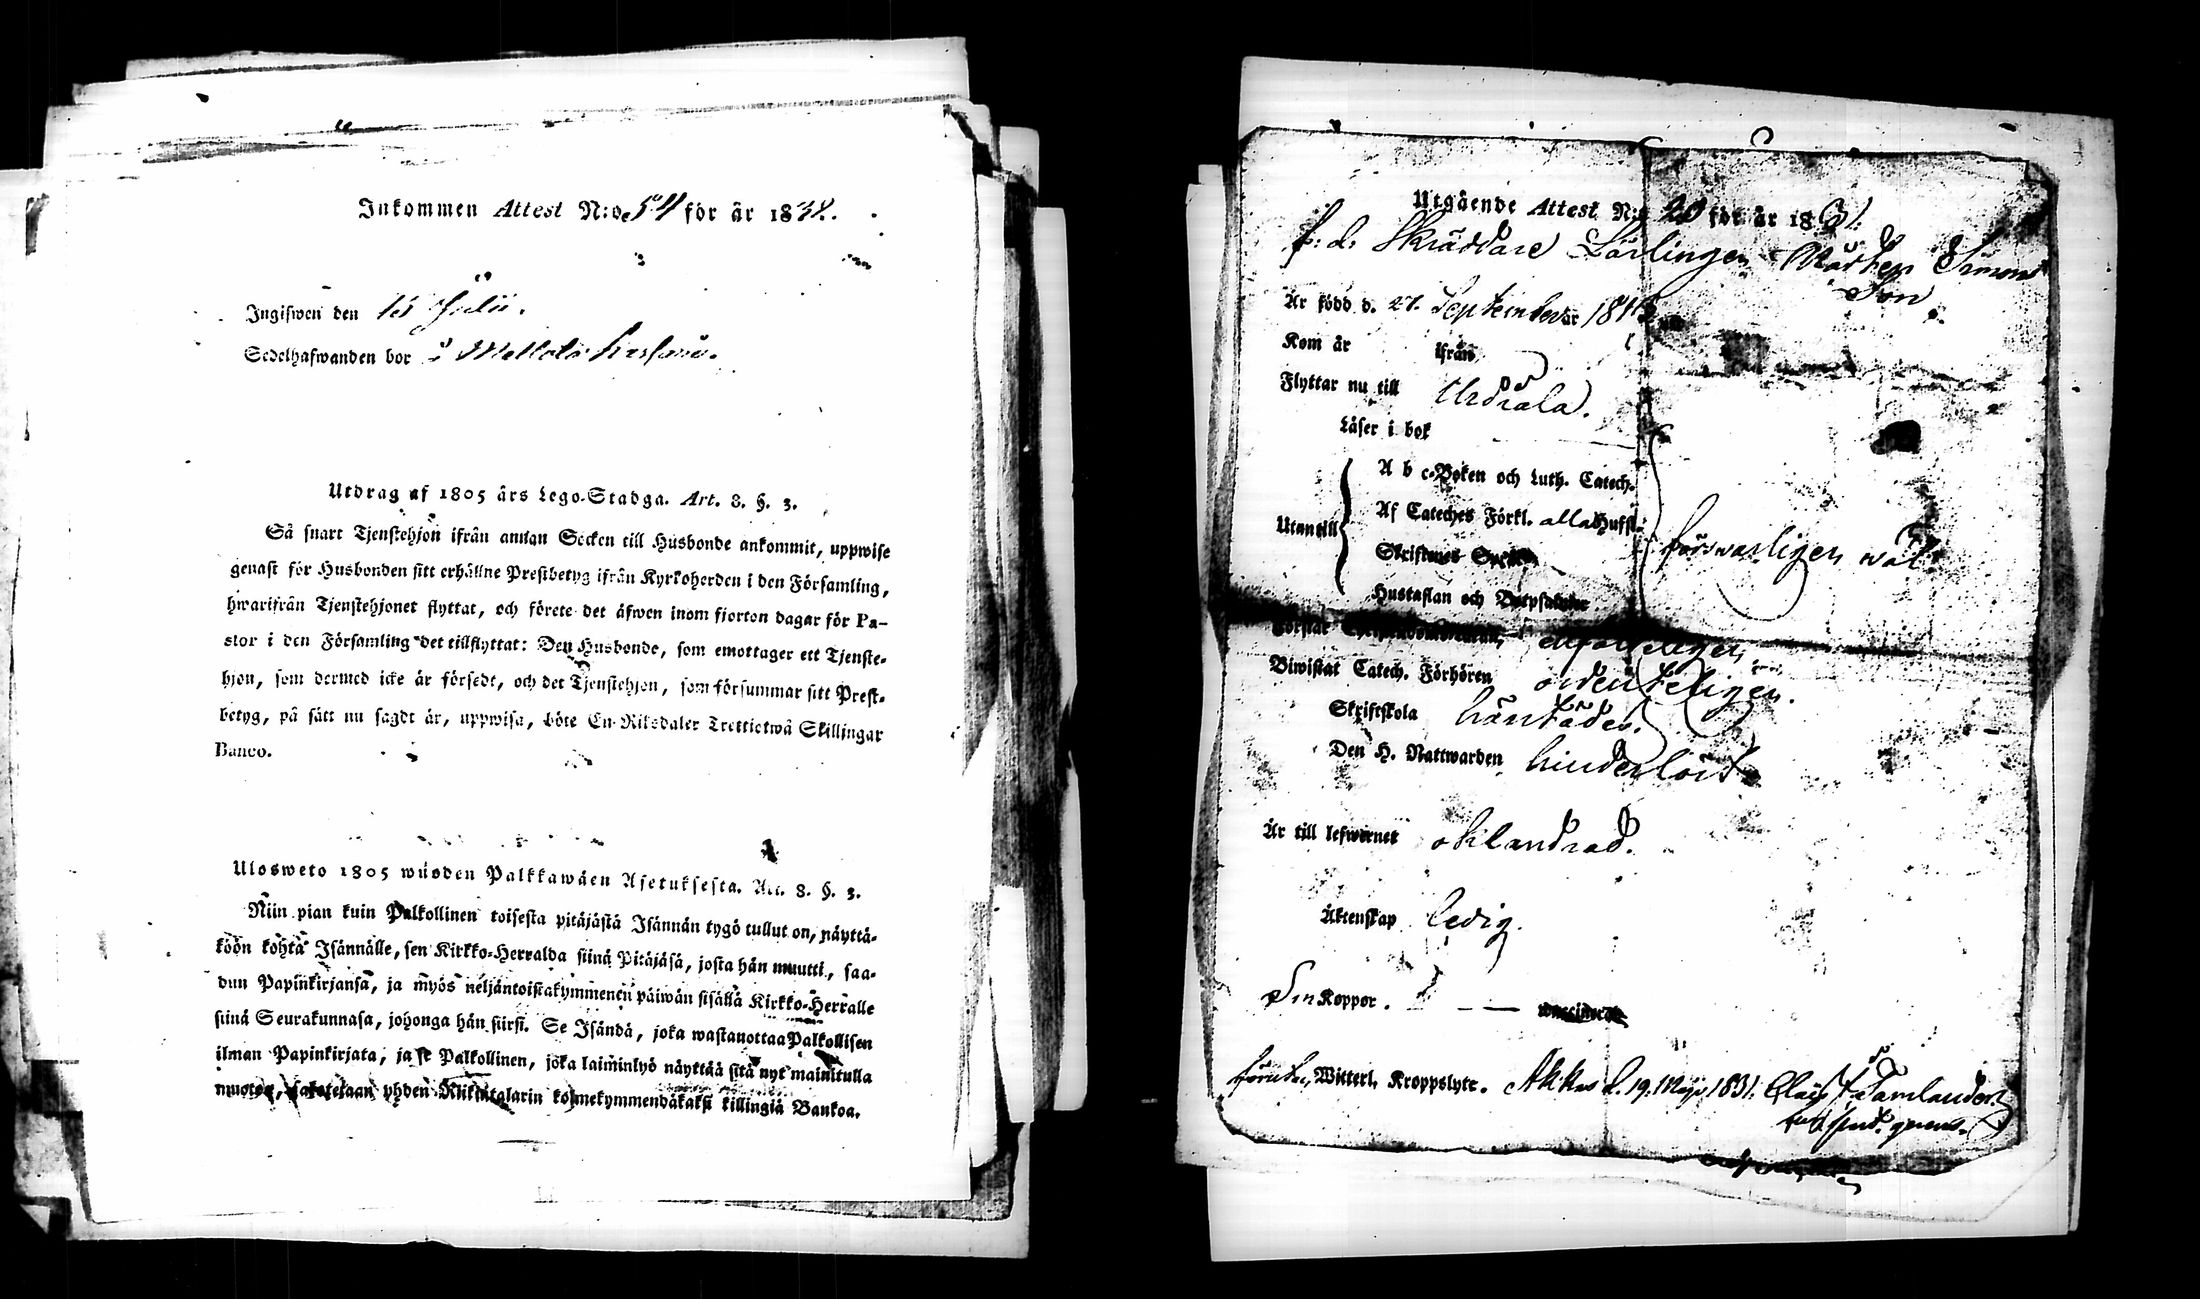 Inkommen Attest N:o 54 för år 1831.
Ingifwen den 15 Julii.
Sedelhafwanden bor i
Utdrag af 1805 års Lego-Stadga. Art. 8. §. 3.
Så snart Tjenstehjon ifrån annan Socken till Husbonde ankommit, uppwise
genast för Husbonden sitt erhållne Prestbetyg ifrån Kyrkoherden i den Församling,
hwarifrån Tjenstehjonet flyttat, och förete det äfwen inom fjorton dagar för Pa-
stor i den Församling det tillflyttat: Den Husbonde, som emottager ett Tjenste-
hjon, som dermed icke är försedt, och det Tjenstehjon, som försummar sitt Prest-
betyg, på sätt nu sagdt är, uppwisa, böte En Riksdaler Trettiotwå Skillingar
Banco.
Ulosweto 1805 wuoden Palkkawäen Asetuksesta. Art. 8. §. 3.
Niin pian kuin Palkollinen toisesta pitäjästä Isännän tygö tullut on, näyttä-
köön kohta Isännälle, sen Kirkko-Herralda siinä Pitäjäsä, josta hän muutti, saa-
dun Papinkirjansa, ja myös neljäntoistakymmenen päiwän sisällä Kirkko-Herralle
siinä Seurakunnasa, johonga hän siirsi. Se Isändä, joka wastanottaa Palkollisen
ilman Papinkirjata, ja se Palkollinen, joka laiminlyö näyttää sitä nyt mainitulla
muotoa, sakotetaan yhden Riikintalarin kolmekymmendäkaksi killingiä Bankoa.
Utgående Attest N:o 20 för år 1831.
f. d. Skräddare Lärlingen Mathen Simons
Son
Är född d. 27. September år
Kom år ifrån
Flyttar nu till Urdiala.
Läser i bok
A b c-Boken och Luth. Catech.
Af Cateches Förkl. alla Hufst.
Utantill försvarligen wäl.
Skriftenes Språk
Hustaflan och Botpsalmer
Förstår Christendomsläran,
Biwistat Catech. Förhören ordenteligen.
Skriftskola
Den H. Nattwarden hinderlöst
Är till lefwernet oklandrad.
Äktenskap ledig.
Sm Koppor. — — vaccinerad
Witterl. Kroppslyte. Akkas d. 19. Maji 1831.